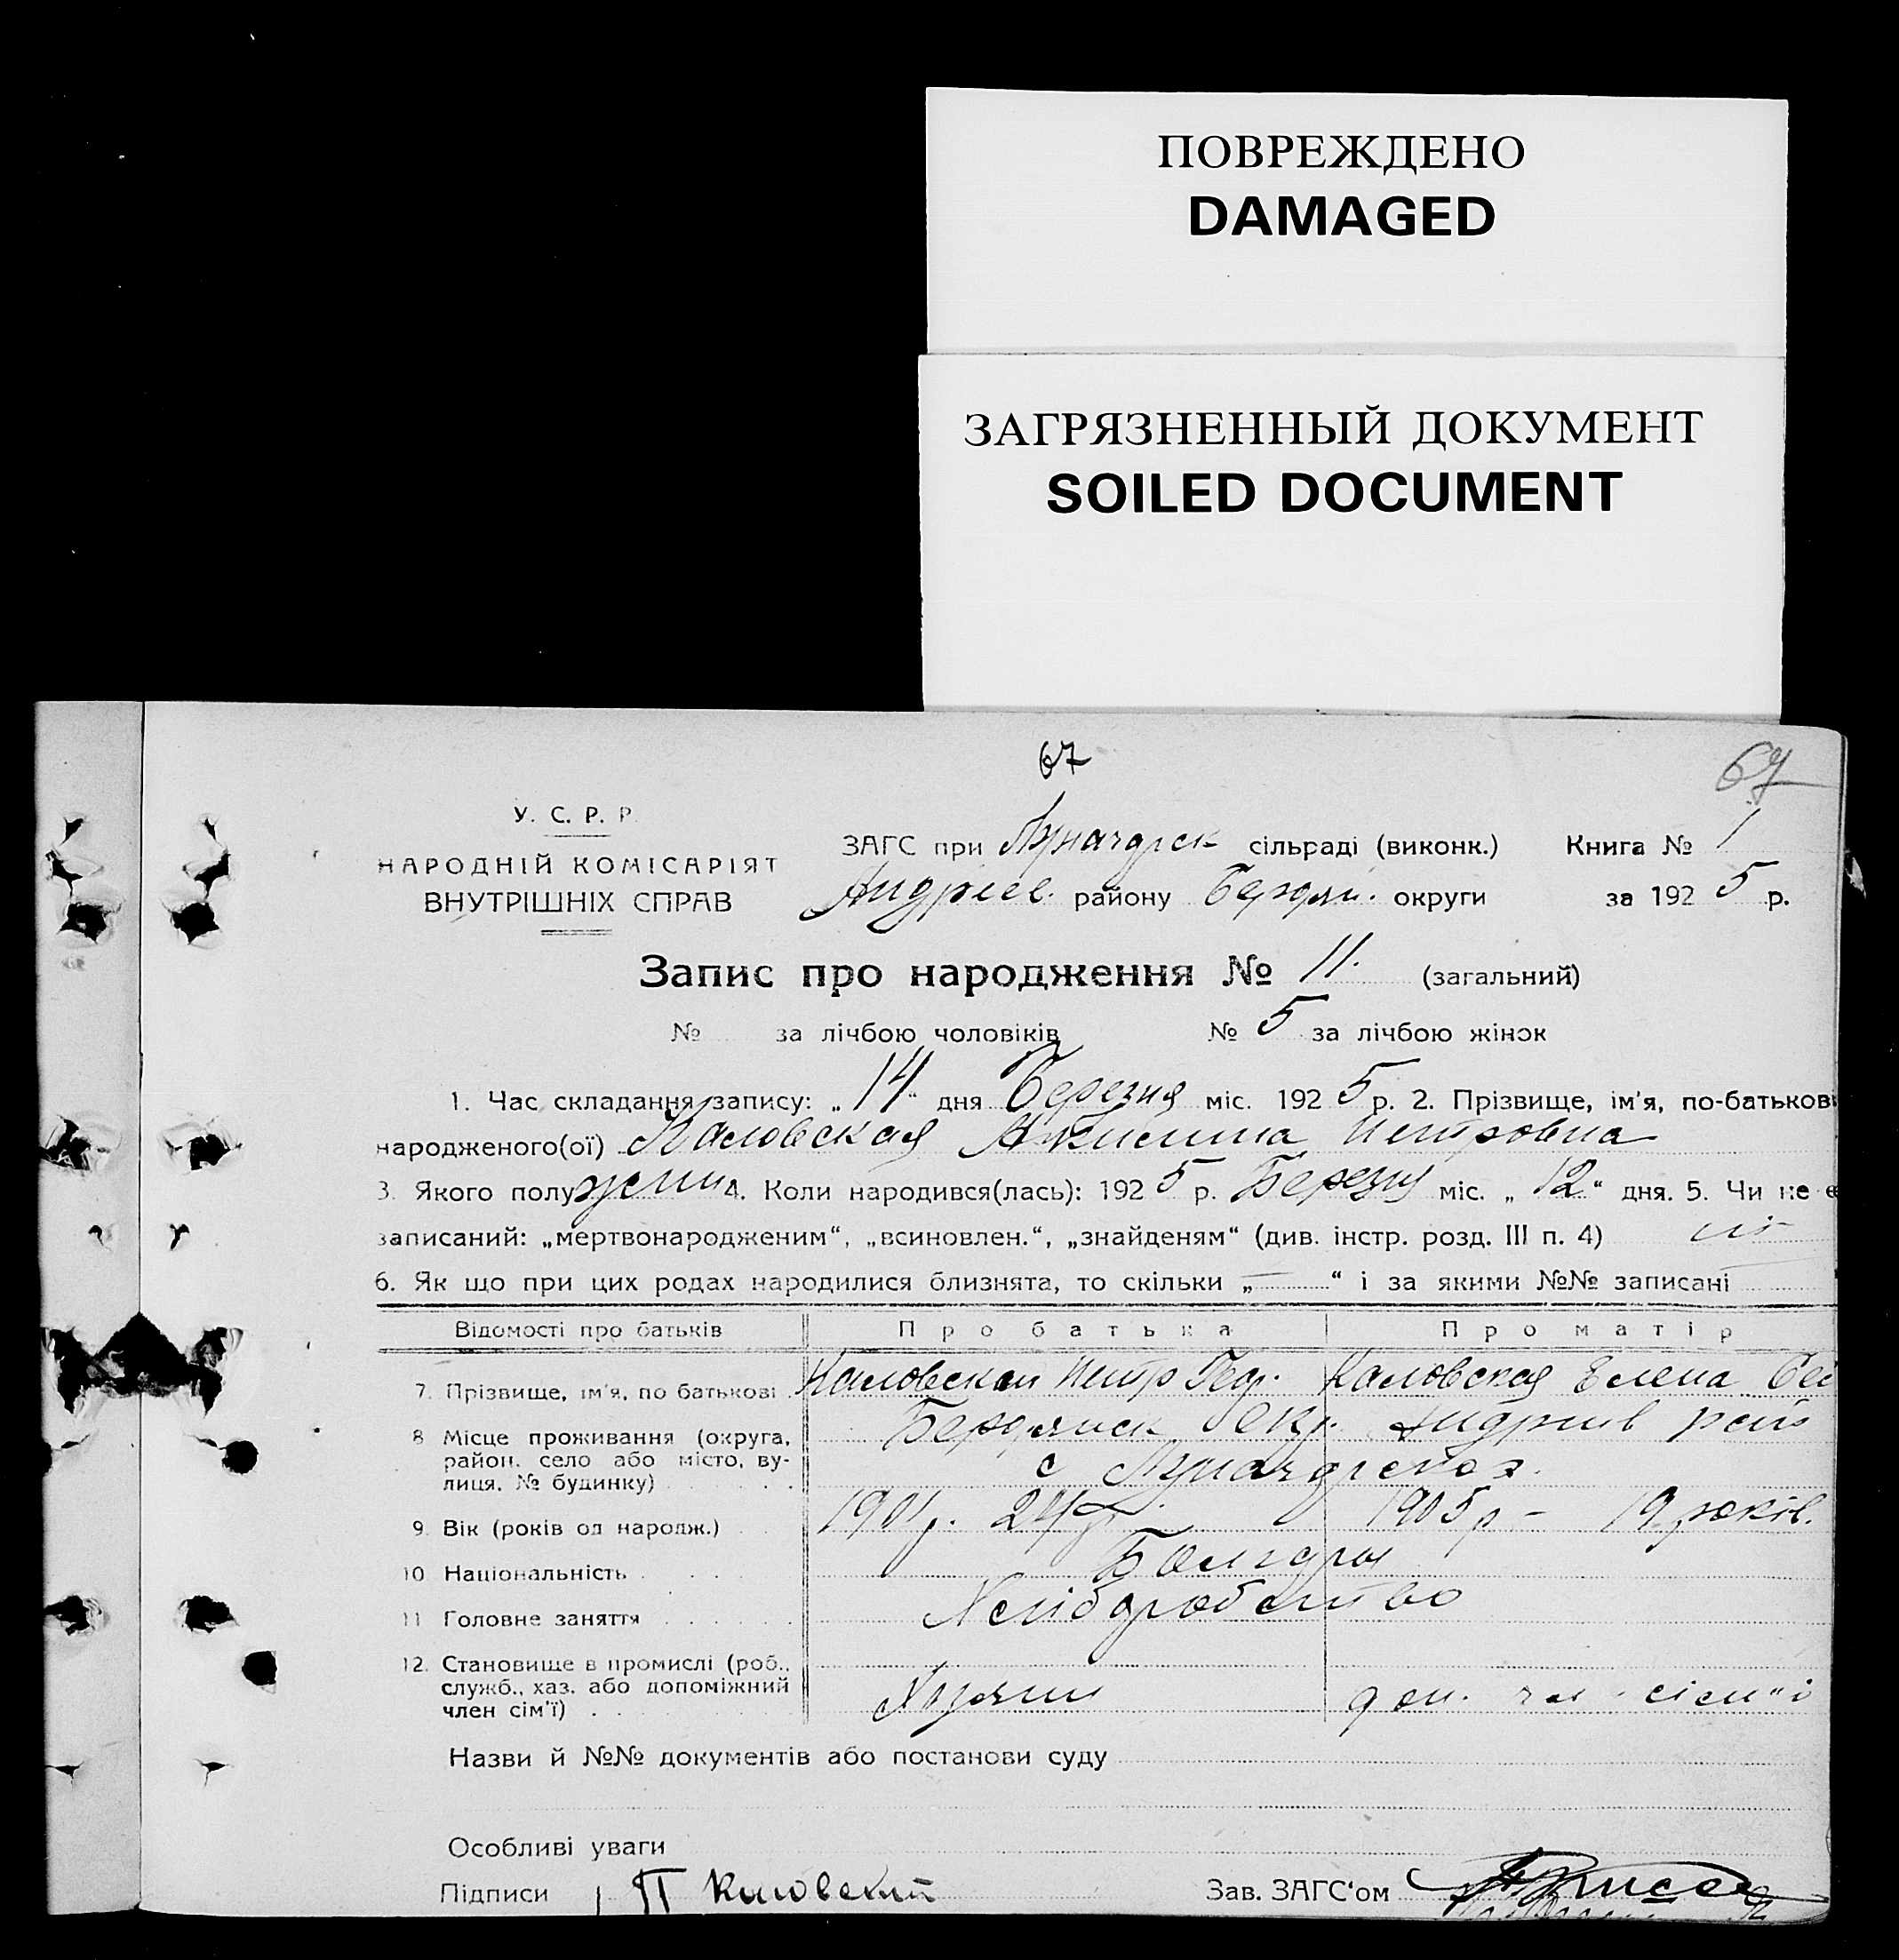 ПОВРЕЖДЕНО
DAMAGED
ЗАГРЯЗНЕННЫЙ ДОКУМЕНТ
SOILED DOCUMENT
67
67
У. С. Р. Р.
НАРОДНІЙ КОМІСАРІЯТ
ВНУТРІШНІХ СПРАВ
ЗАГС при Луначарск сільраді (виконк.) Книга № 1
Андріев. району Бердян. округи за 1925 р.
Запис про народження № 11. (загальний)
№ за лічбою чоловіків № 5 за лічбою жінок
1. Час складання запису: „14" дня Березня міс. 1925 р. 2. Прізвище, ім'я, по-батькові
народженого(ої) Каловская Акилина Петровна
3. Якого полу жін 4. Коли народився(лась): 1925 р. Березня міс. „12" дня. 5. Чи не є
записаний: „мертвонародженим", „всиновлен.", „знайденям" (див. інстр. розд. III п. 4) ні
6. Як що при цих родах народилися близнята, то скільки „—" і за якими №№ записані
Відомості про батьків Про батька Про матір
7. Прізвище, ім'я, по батькові Каловской Петр Каловская Елена
8 Місце проживання (округа, Бердянск Окр. Андриив райо
район, село або місто, ву- с Луначарское.
лиця, № будинку)
9. Вік (років од народж.) 1901р. 24 1905р - 19 років.
10 Національність Болгары
11 Головне заняття Хліборобство
12. Становище в промислі (роб.,
служб., хаз. або допоміжний Хозяин доп. чл. сім"ї
член сім'ї)
Назви й №№ документів або постанови суду
Особливі уваги
Підписи П Каловский Зав. ЗАГС'ом